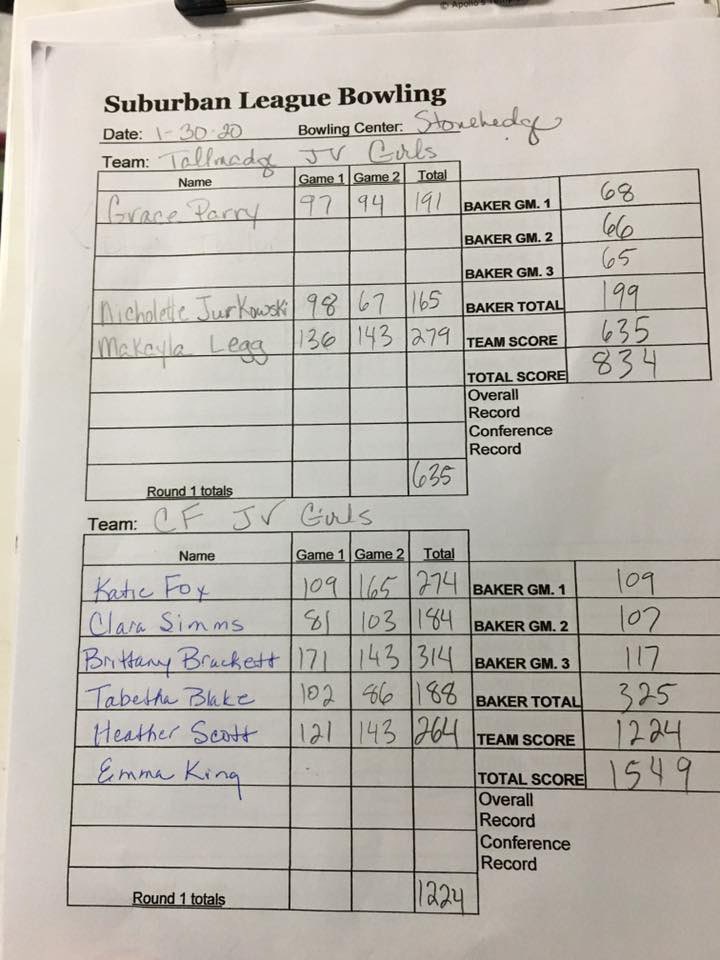 © Apollo's Temp
Suburban League Bowling
Date: 1-30-20 Bowling Center: Stonehedge
Team: Tallmadge JV Girls
Name Game 1 Game 2 Total
Grace Parry 97 94 191 BAKER GM. 1 68
BAKER GM. 2 66
BAKER GM. 3 65
Nicholette Jurkowski 98 67 165 BAKER TOTAL 199
Makayla Legg 136 143 279 TEAM SCORE 635
TOTAL SCORE 834
Overall
Record
Conference
Record
Round 1 totals 635
Team: CF JV Girls
Name Game 1 Game 2 Total
Katie Fox 109 165 274 BAKER GM. 1 109
Clara Simms 81 103 184 BAKER GM. 2 107
Brittany Brackett 171 143 314 BAKER GM. 3 117
Tabetha Blake 102 86 188 BAKER TOTAL 325
Heather Scott 121 143 264 TEAM SCORE 1224
Emma King TOTAL SCORE 1549
Overall
Record
Conference
Record
Round 1 totals 1224